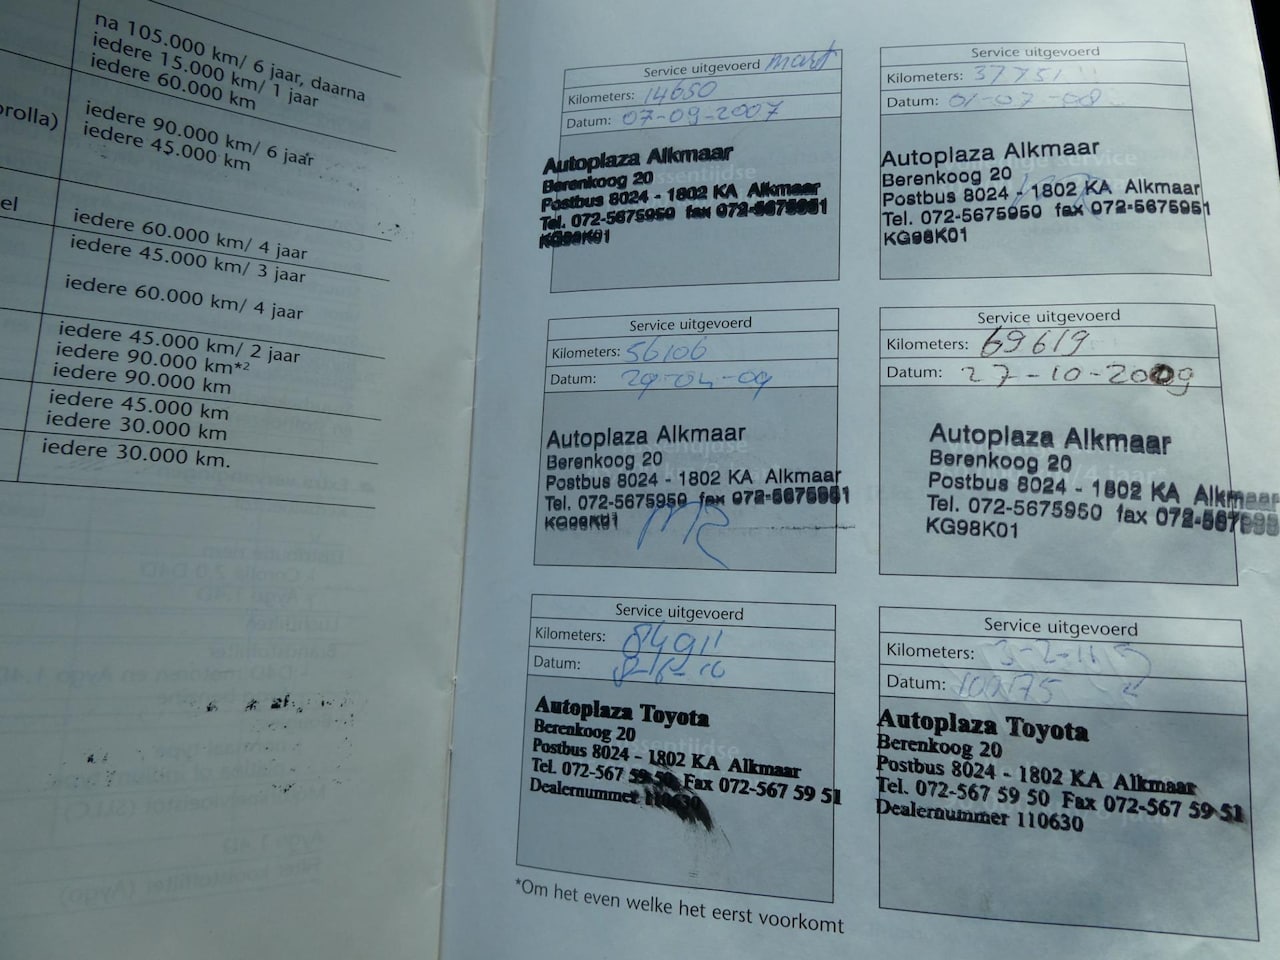 na 105.000 km/ 6 jaar, daarna
iedere 15.000 km/ 1 jaar
iedere 60.000 km
orolla) iedere 90.000 km/ 6 jaar
iedere 45.000 km
el iedere 60.000 km/ 4 jaar
iedere 45.000 km/ 3 jaar
iedere 60.000 km/ 4 jaar
iedere 45.000 km/ 2 jaar
iedere 90.000 km*2
iedere 90.000 km
iedere 45.000 km
iedere 30.000 km
iedere 30.000 km.
Service uitgevoerd
Kilometers: 14650
Datum: 07-09-2007
Autoplaza Alkmaar
Berenkoog 20
Postbus 8024 - 1802 KA Alkmaar
Tel. 072-5675950 fax 072-5675951
KG98K01
Service uitgevoerd
Kilometers: 37751
Datum: 01-07-08
Autoplaza Alkmaar
Berenkoog 20
Postbus 8024 - 1802 KA Alkmaar
Tel. 072-5675950 fax 072-5675951
KG98K01
Service uitgevoerd
Kilometers: 56106
Datum: 29-04-09
Autoplaza Alkmaar
Berenkoog 20
Postbus 8024 - 1802 KA Alkmaar
Tel. 072-5675950 fax 072-5675951
KG98K01
Service uitgevoerd
Kilometers: 69619
Datum: 27-10-2009
Autoplaza Alkmaar
Berenkoog 20
Postbus 8024 - 1802 KA Alkmaar
Tel. 072-5675950 fax 072-567595
KG98K01
Service uitgevoerd
Kilometers: 84911
Datum: 8-6-10
Autoplaza Toyota
Berenkoog 20
Postbus 8024 - 1802 KA Alkmaar
Tel. 072-567 59 50 Fax 072-567 59 51
Dealernummer 110630
Service uitgevoerd
Kilometers:
Datum:
Autoplaza Toyota
Berenkoog 20
Postbus 8024 - 1802 KA Alkmaar
Tel. 072-567 59 50 Fax 072-567 59 51
Dealernummer 110630
*Om het even welke het eerst voorkomt